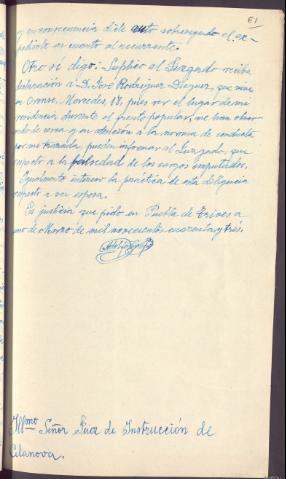 61
y en consecuencia dicte auto sobreseyendo el ex-
pediente en cuanto al recurrente.
Otro sí digo: Suplico al Juzgado reciba
declaración a D. José Rodríguez Dieguez, que vive
en Orense, Mercedes, 18, pues por el lugar de mi
residencia durante el frente popular, me han obser-
vado de cerca y en atención a la norma de conducta
por mi trazada, pueden informar al Juzgado, que
respecto a la falsedad de los cargos imputados.
Igualmente intereso la práctica de esta diligencia
respecto a mi esposa.
Es justicia que pido en Puebla de Trives a
uno de Marzo de mil novecientos cuarenta y tres.
Illmo Señor Juez de Instrucción de
Celanova.